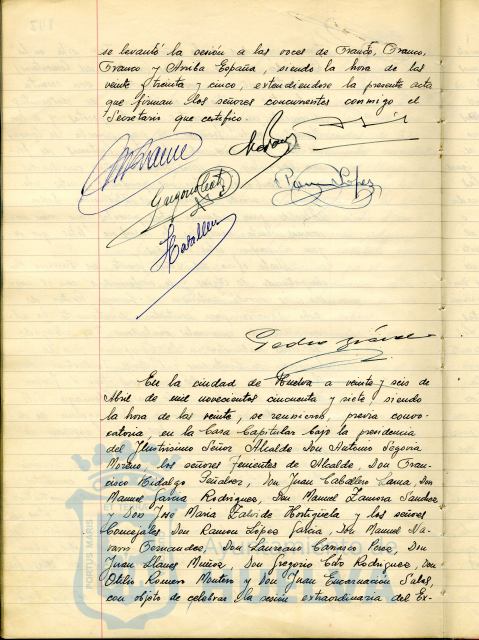 se levantó la sesión a las voces de Franco, Franco,
Franco y Arriba España, siendo la hora de las
veinte y treinta y cinco, extendiendose la presente acta
que firman los señores concurrentes conmigo el
Secretario que certifico.
Ramon Lopez
Caballero
Pedro
En la ciudad de Huelva a veinte y seis de
Abril de mil novecientos cincuenta y siete siendo
la hora de las veinte, se reunieron, previa convo-
catoria, en la Casa Capitular bajo la presidencia
del Ilustrisimo Señor Alcalde Don Antonio Segovia
Moreno los señores Tenientes de Alcalde, Don Fran-
cisco Hidalgo Peñalver, Don Juan Caballero Lama, Don
Manuel Garcia Rodriguez, Don Manuel Zamora Sanchez
y Don José Maria Zalvide Hortigüela y los señores
Concejales Don Ramon López Garcia, Don Manuel Na-
varro Fernandez, Don Laureano Carrasco Perea, Don
Juan Llanes Muñoz, Don Gregorio Coto Rodriguez, Don
Otilio Romero Montero y Don Juan Encarnación Salas,
con objeto de celebrar la sesión extraordinaria del Ex-
PORTUS MARIS